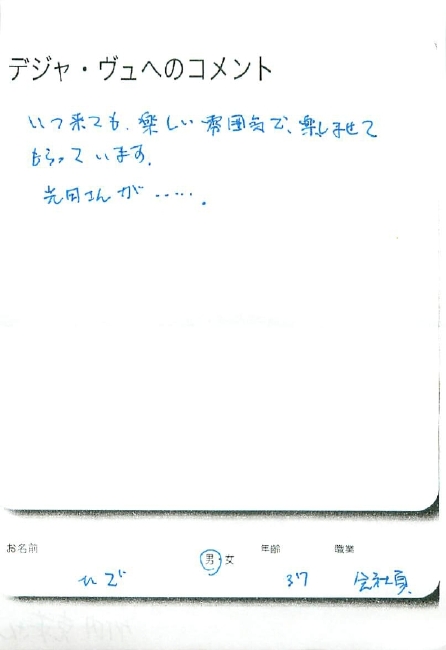 デジャ・ヴュへのコメント
いつ来ても、楽しい雰囲気で、楽しませて
もらっています。
さんが……。
お名前
男・女
年齢
職業
ひで
37
会社員